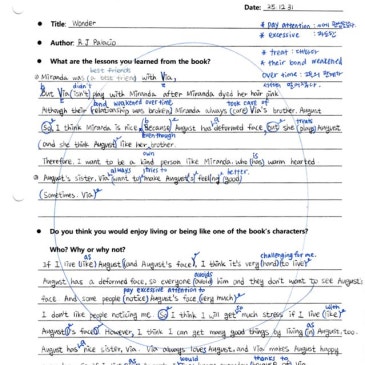 Date: 25.12.31
Title: Wonder
* pay attention :
* excessive :
Author: R.J Palacio
* treat :
* bond weakened
over time :
What are the lessons you learned from the book?
best friends
Miranda was (a best friend) with Via,
didn't
but Via (isn't) play with Miranda after Miranda dyed her hair pink.
bond weakened over time took care of
Although their (relationship was broken) Miranda always (care) Via's brother. August
So, I think Miranda is nice. Because August has deformed face, but she (plays) August
treats
even though
(and she think August) like her brother.
own
Therefore, I want to be a kind person like Miranda who (is) warm hearted
always tries to better.
August's sister, Via (want to) make August('s) feeling (good)
(Sometimes. Via)
Do you think you would enjoy living or being like one of the book's characters?
Who? Why or why not?
as challenging for me.
If I live (like) August (and August's face), I think it's very (hard to live)
avoids
August has a deformed face, so everyone (avoid) him and they don't want to see August's
pay excessive attention to
face. And some people (notice) August's face (very much)
as with
I don't like people noticing me. So I think I will get so much stress if I live (like)
August('s face). However, I think I can get many good things by living (in) August, too.
August has nice sister, Via. Via always loves August. and Via makes August happy.
would thanks to